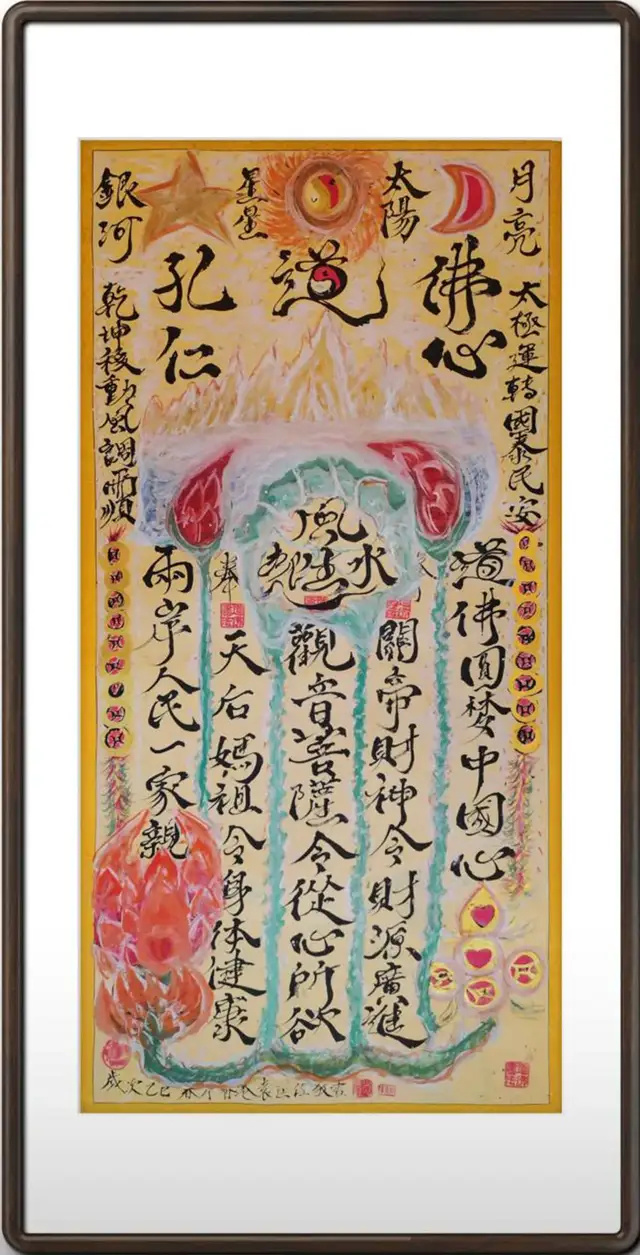 月亮
太陽
星星
銀河
佛心
道
孔仁
太極運轉國泰民安
乾坤移動風調雨順
風生水起
道佛圓梦中國心
關帝財神令財源廣進
觀音菩薩令從心所欲
奉
天后媽祖令身体健康
兩岸人民一家親
歲次乙巳春月香港袁